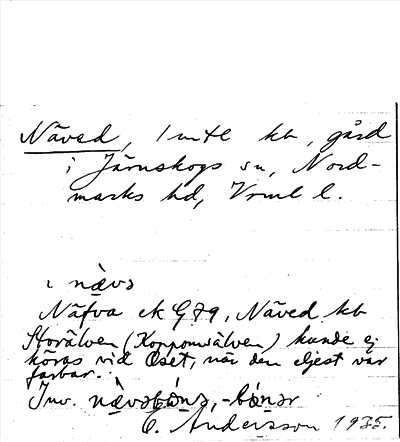 Näved, 1 mtl kb, gård
i Järnskogs sn, Nord-
marks hd, Vrml l.
ɩ næ̀və
Näfva ek G79, Näved kb
Storälven (Koppomsälven) kunde ej
köras vid Oset, när den eljest var
farbar.
Inv. næ̀vəbónə, -bónər
C. Andersson 1935.